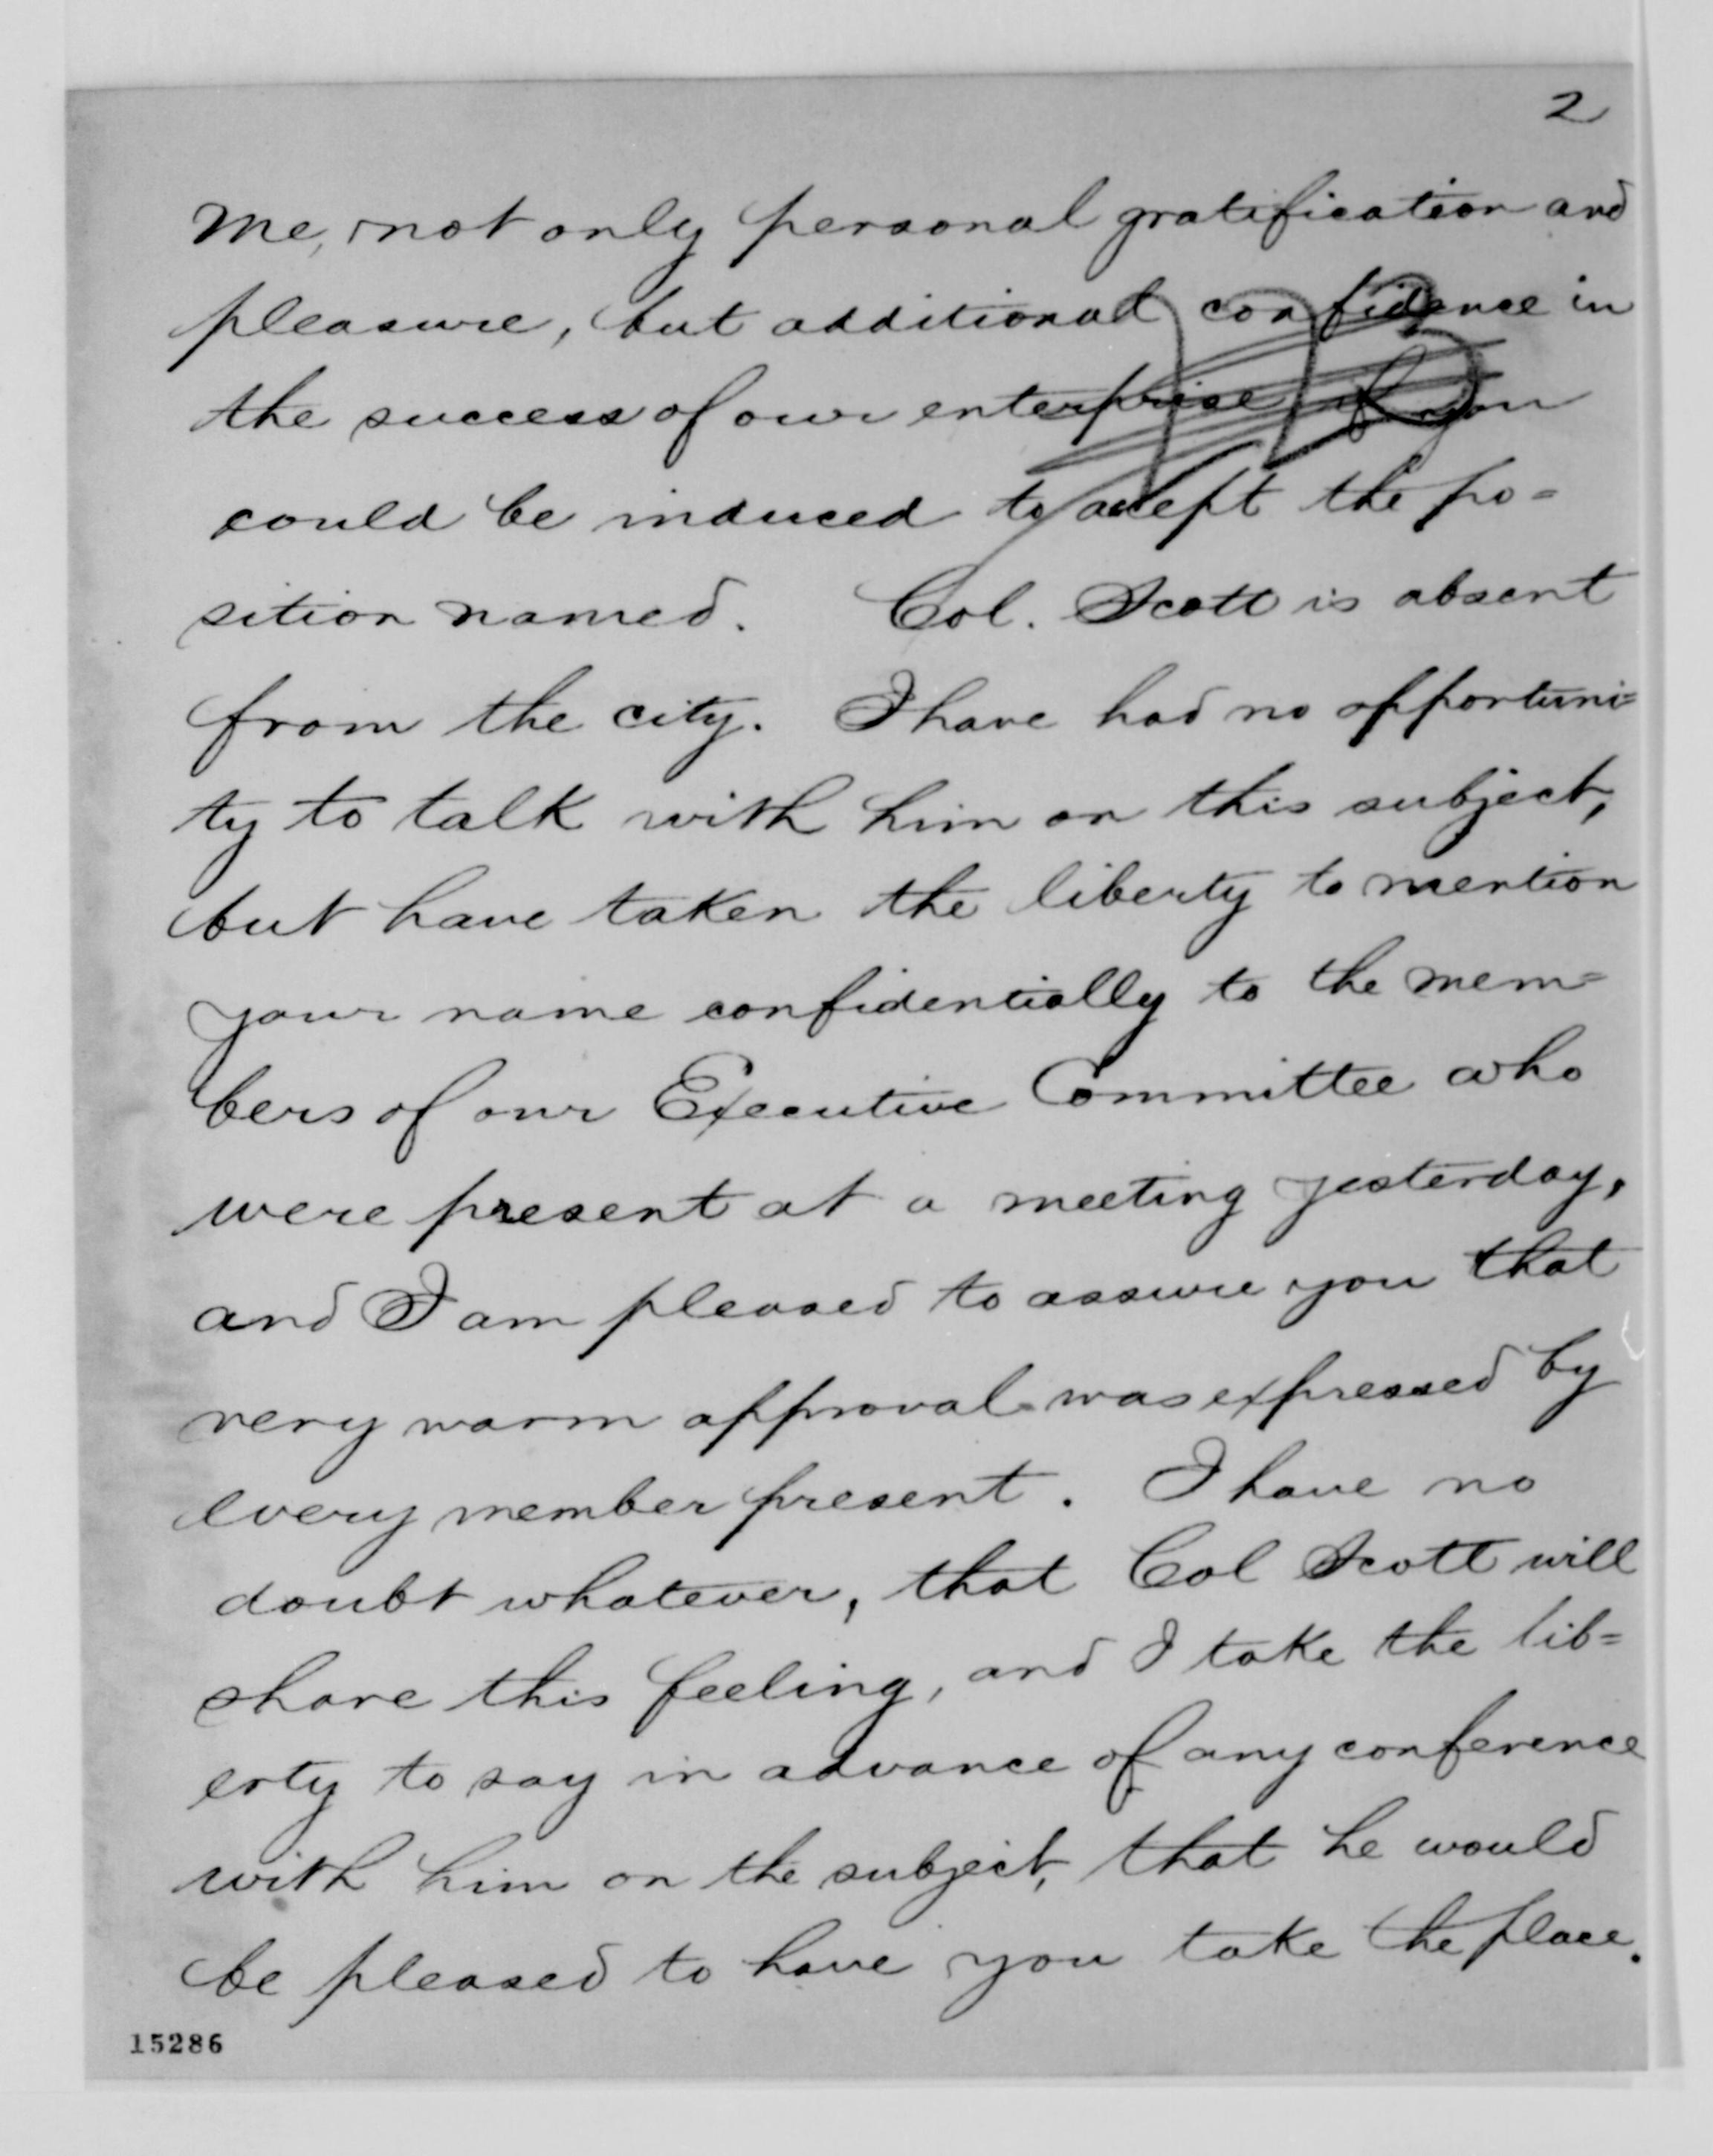 2
me, not only personal gratification and
pleasure, but additional confidence in
the success of our enterprise if you
could be induced to accept the po=
sition named. Col. Scott is absent
from the city. I have had no opportuni=
ty to talk with him on this subject,
but have taken the liberty to mention
your name confidentially to the mem=
bers of our Executive Committee who
were present at a meeting yesterday,
and I am pleased to assure you that
very warm approval was expressed by
every member present. I have no
doubt whatever, that Col Scott will
share this feeling, and I take the lib=
erty to say in advance of any conference
with him on the subject, that he would
be pleased to have you take the place.
15286